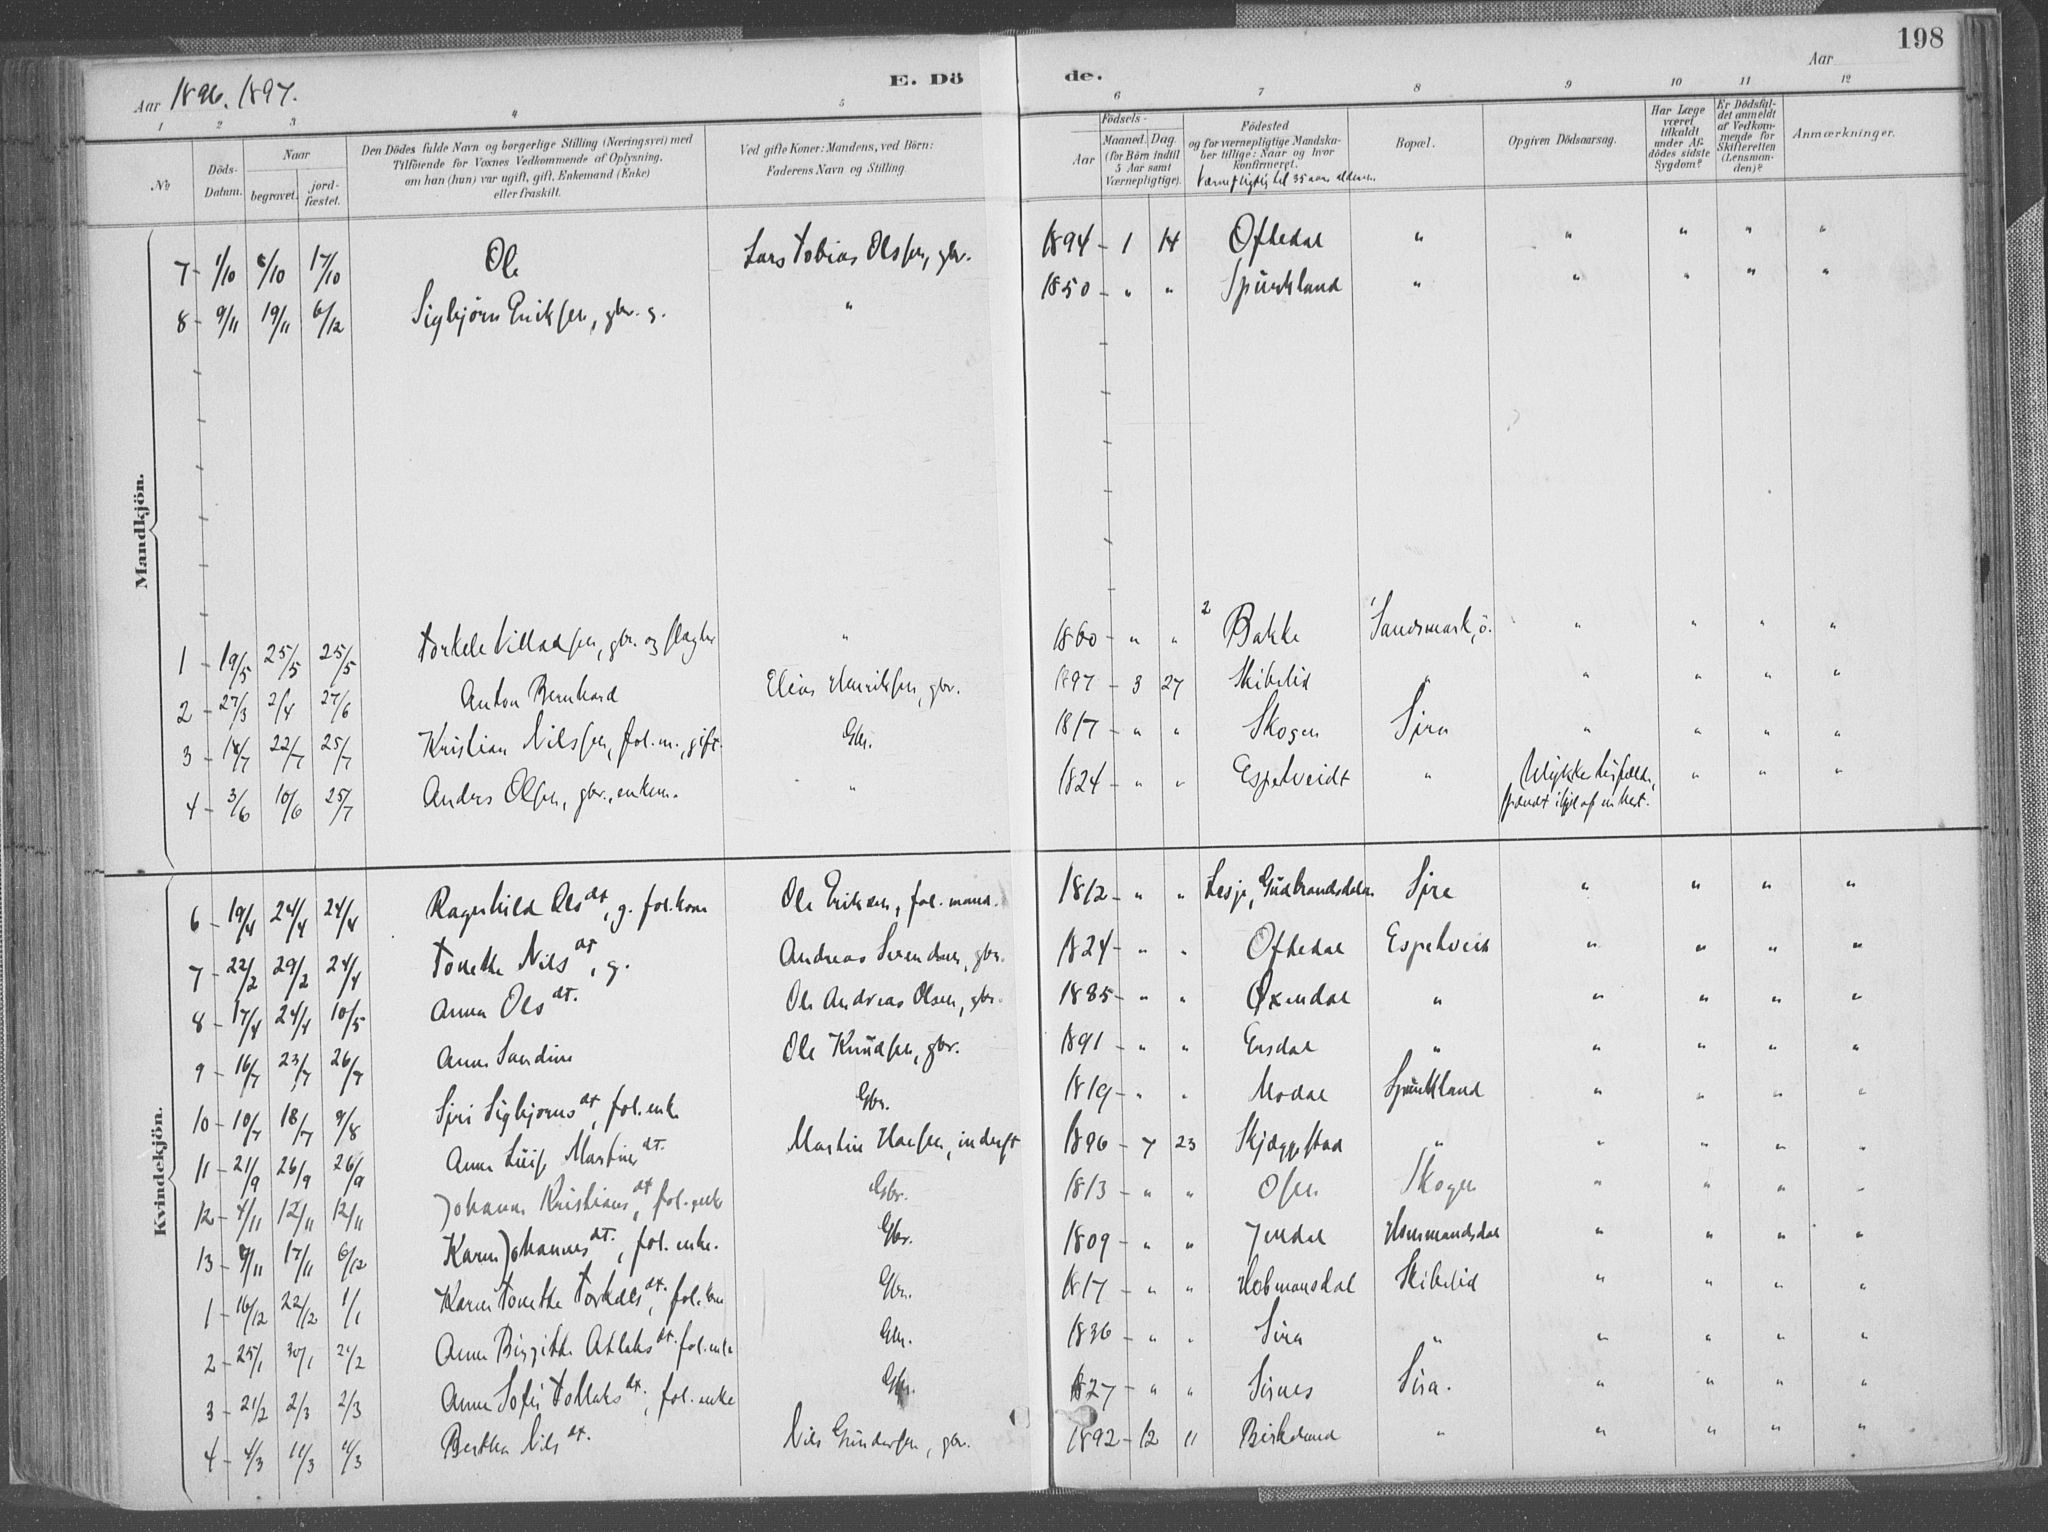 198
Aar 1896. 1897.
E. Dö de.
Aar
1 2 3 4 5 6 7 8 9 10 11 12
No
Döds-Datum.
Naar
begravet.
jord-fæstet.
Den Dödes fulde Navn og borgerlige Stilling (Næringsvei) med
Tilföiende for Voxnes Vedkommende af Oplysning,
om han (hun) var ugift, gift, Enkemand (Enke)
eller fraskilt.
Ved gifte Koner: Mandens, ved Börn:
Faderens Navn og Stilling.
Födsels-
Aar
Maaned. Dag.
(for Börn indtil
5 Aar samt
Værnepligtige).
Födested
og for værnepligtige Mandska-
ber tillige: Naar og hvor
konfirmeret.
Værnepligtig til 35 aars alderen.
Bopæl.
Opgiven Dödsaarsag.
Har Læge
været
tilkaldt
under Af-
dödes sidste
Sygdom?
Er Dödsfal-
det anmeldt
af Vedkom-
mende for
Skifteretten
(Lensman-
den)?
Anmærkninger.
Mandkjön.
7 - 1/10 6/10 17/10 Ole Lars Tobias Olsen, gbr. 1894 - 1 14 Oftedal " " " " "
8 - 9/11 19/11 6/12 Sigbjörn Eriksen, gbr. g. " 1850 - " " Spurkland " " " " "
1 - 19/5 25/5 25/5 Torkele Villadsen, gbr. og " 1860 - " " 2 Bakke 1 Sandsmark, ö. " " " "
2 - 27/3 2/4 27/6 Anton Bernhard Elias Henriksen, gbr. 1897 - 3 27 Skibelid " " " " "
3 - 14/7 22/7 25/7 Kristian Nilssen, fol.m., gift. Gbr. 1817 - " " Skogen Sira " " " "
4 - 3/6 10/6 25/7 Anders Olsen, gbr., enkem. " 1824 - " " Espetveidt " Ulykkestilfælde, " " "
spændt ihjel af en hest.
Kvindekjön.
6 - 19/4 24/4 24/4 Ragnhild Olsdt, g. fol.kone Ole Eriksen, fol.mand. 1812 - " " Lesje, Gudbrandsdalen Sire " " " "
7 - 22/2 29/2 24/4 Tonette Nilsdt, g. Andreas Svendsen, gbr. 1824 - " " Oftedal Espetveit " " " "
8 - 17/4 24/4 10/5 Anna Olsdt. Ole Andreas Olsen, gbr. 1885 - " " Öxendal " " " " "
9 - 16/7 23/7 26/7 Anne Sandine Ole Knudsen, gbr. 1891 - " " Ersdal " " " " "
10 - 10/7 18/7 9/8 Siri Sigbjörnsdt, fol.enke Gbr. 1819 - " " Modal Spurkland " " " "
11 - 21/9 26/9 26/9 Anne Luise Martinsdt. Martin Hansen, inderst 1896 - 7 23 Skjeggestad " " " " "
12 - 4/11 12/11 12/11 Johanne Kristiansdt, fol.enke Gbr. 1813 - " " Osen Skogen " " " "
13 - 9/11 17/11 6/12 Karen Johannesdt., fol.enke. Gbr. 1809 - " " Indal Hommandsdal " " " "
1 - 16/12 22/12 1/1 Karen Tonette Torkelsdt., fol.kone Gbr. 1817 - " " Hobmansdal Skibelid " " " "
2 - 25/1 30/1 21/2 Anne Birgitte Atlaksdt. fol.enke Gbr. 1836 - " " Sira " " " " "
3 - 21/2 2/3 2/3 Anne Sofie Tollaksdt., fol.enke Gbr. 1827 - " " Sirnes Sira. " " " "
4 - 4/3 11/3 11/3 Bertha Nilsdt. Nils Gundersen, gbr. 1892 - 12 11 Birkeland " " " " "